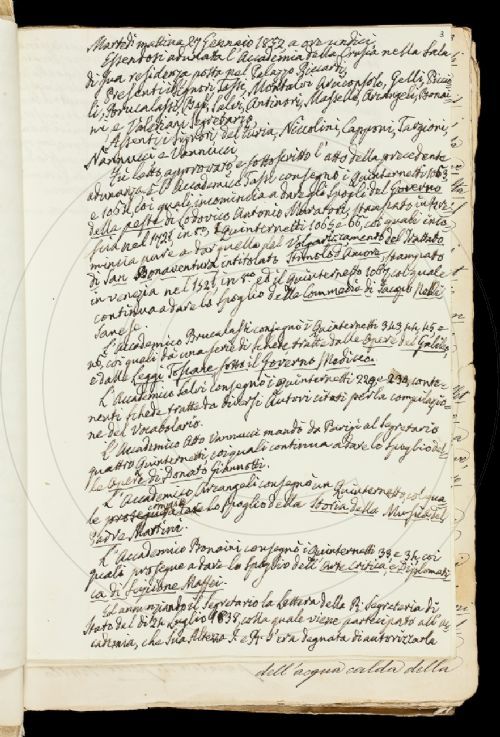 3
Martedì mattina 27 Gennaio 1857 a ore undici
Essendosi adunata l'Accademia della Crusca nella Sala
di sua residenza posta nel Palazzo Riccardi,
Presenti i Signori Tassi, Montalvi, Arciconsolo, Gelli, Bucci
li, Brucalassi, Bap. Salvi, Antinori, Masselli, Arcangeli, Bonai
ni e Valeriani Segretario
Assenti i Signori del Furia, Niccolini, Capponi, Targioni,
Nannucci e Vannucci
Fu letto, approvato e sottoscritto l'atto della precedente
adunanza. E l'Accademico Tassi consegnò i Quinternetti 1063
e 1064, coi quali incomincia a dare lo spoglio del Governo
della peste di Lodovico Antonio Muratori, stampato in
nel 1721 in 8.vo I Quinternetti 1065 e 66, coi quali inco=
mincia pure a dar quello del Volgarizzamento del Trattato
di San Bonaventura intitolato Stimolo d'Amore, stampato
in Venezia nel 1521, in 8.vo ed il Quinternetto 1067, col quale
continua a dare lo spoglio delle Commedie di Jacopo Nelli
Sanese.
L'Accademico Brucalassi consegnò i Quinternetti 343, 44, 45 e
46, coi quali dà una serie di schede tratte dalle Opere del Galileo,
e dalle Leggi Toscane sotto il Governo Mediceo.
L'Accademico Salvi consegnò i quinternetti 229 e 230, conte=
nenti schede tratte da diversi Autori citati per la compilazio=
ne del Vocabolario.
L'Accademico Atto Vannucci mandò da Parigi al Segretario
quattro Quinternetti, coi quali continua a dare lo spoglio del=
le Opere di Donato Giannotti.
L'Accademico Arcangeli consegnò un Quinternetto, col qua
le prosegue a dare lo spoglio della Storia della Musica del
Padre Martini.
L'Accademico Bonaini consegnò i Quinternetti 33 e 34, coi
quali prosegue a dare lo spoglio dell'Arte Critica, e Diplomati
ca di Scipione Maffei.
Ed annunziando il Segretario la Lettera della R. Segreteria di
Stato del dì 24 Luglio 1838, colla quale viene partecipato all'Ac
cademia, che Sua Altezza I. e R. s'era degnata di autorizzarla
dell'acqua calda della